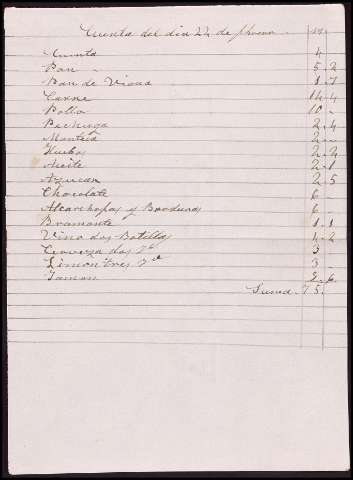 Cuenta del dia 22 de
Cuenta 4
Pan 5. 2
Pan de Viena 1. 7
Carne 14. 4
Pollo 10 -
Pechuga 2. 4
Manteca 2 -
Huebos 2. 2
Aceite 2. 1
Azucar 2. 5
Chocolate 6 -
Alcarchofas y Barduras 6 -
Bramante 1. 1
Vino dos Botellas 4. 2
Cerveza dos 3
Limon tres 3 -
Jamon 6
Suma. 75.